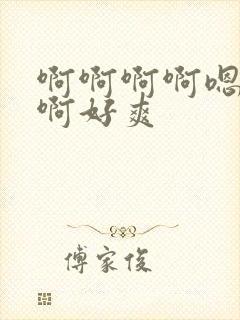 啊啊啊啊嗯
啊好爽
傅家俊